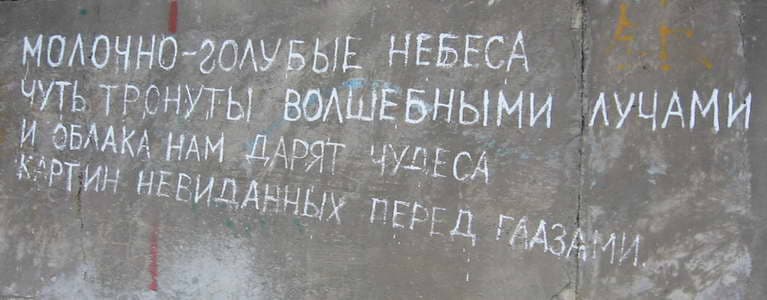 МОЛОЧНО-ГОЛУБЫЕ НЕБЕСА
ЧУТЬ ТРОНУТЫ ВОЛШЕБНЫМИ ЛУЧАМИ
И ОБЛАКА НАМ ДАРЯТ ЧУДЕСА
КАРТИН НЕВИДАННЫХ ПЕРЕД ГЛАЗАМИ.